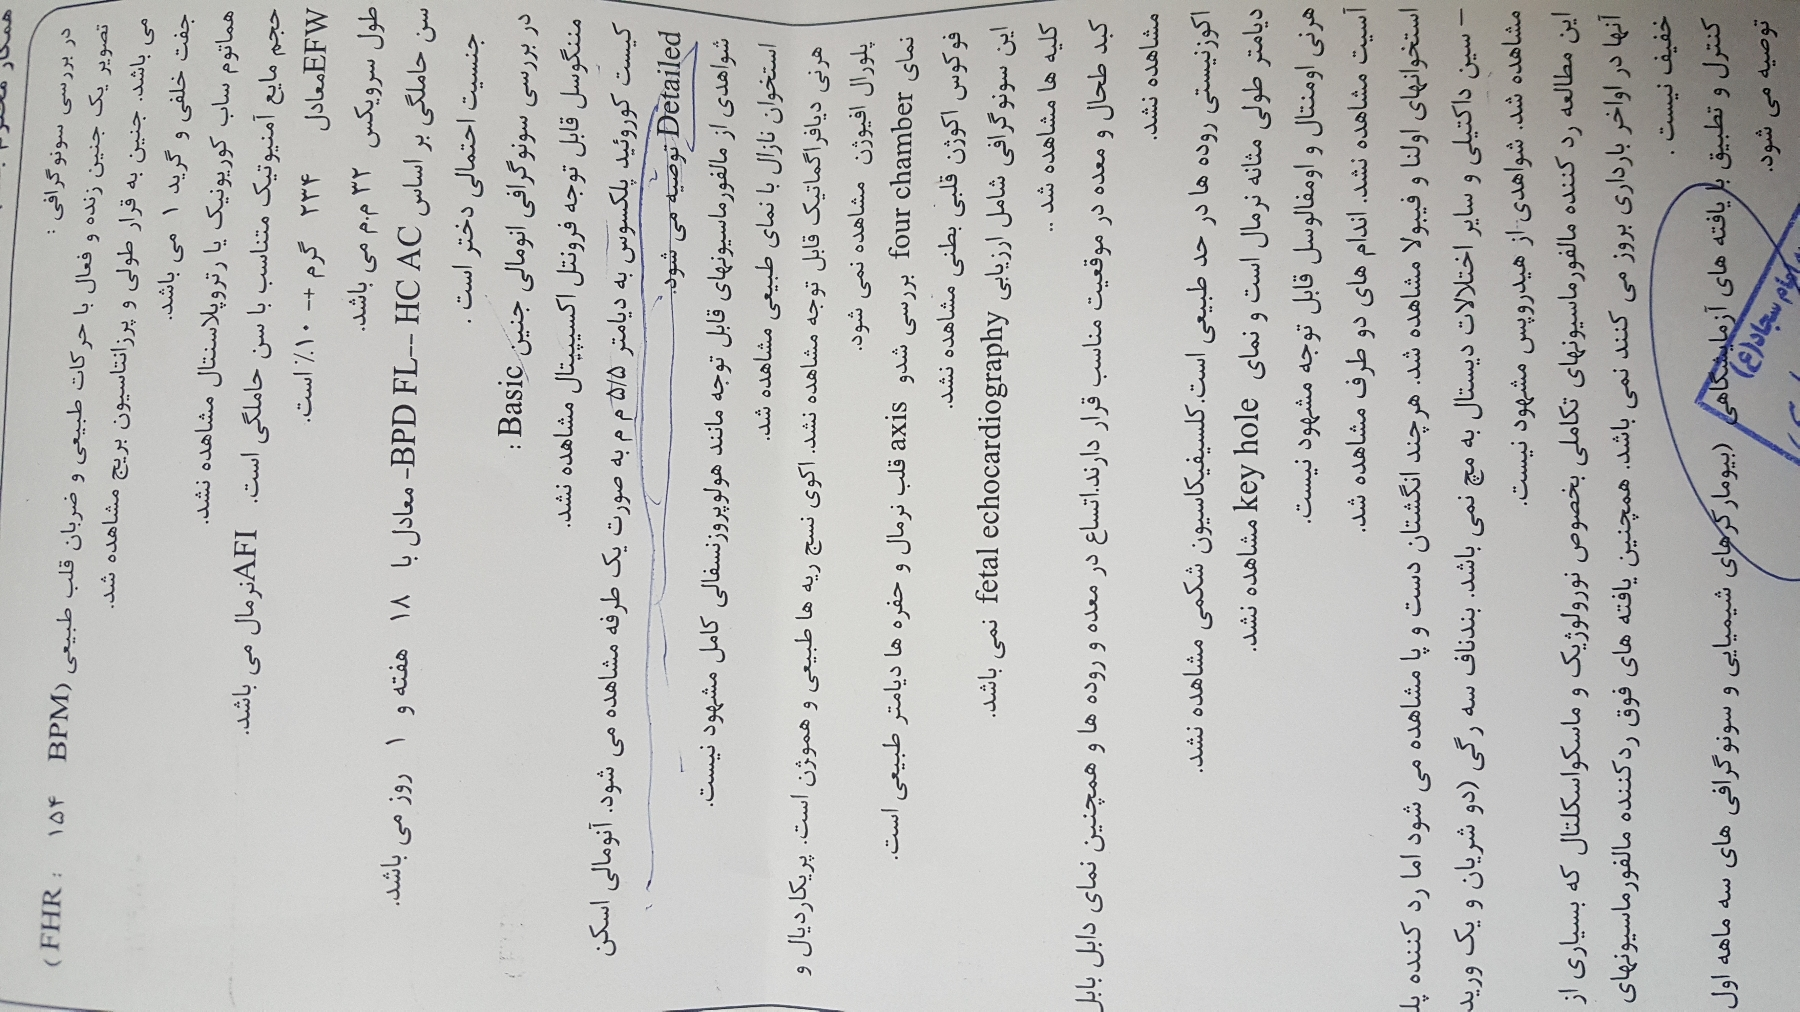 همکار محترم
در بررسی سونوگرافی :
تصویر یک جنین زنده و فعال با حرکات طبیعی و ضربان قلب طبیعی (FHR : ۱۵۴ BPM)
می باشد. جنین به قرار طولی و پرزانتاسیون بریچ مشاهده شد.
جفت خلفی و گرید ۱ می باشد.
هماتوم ساب کوریونیک یا رتروپلاسنتال مشاهده نشد.
حجم مایع آمنیوتیک متناسب با سن حاملگی است. AFIنرمال می باشد.
EFWمعادل ۲۳۴ گرم +- ۱۰٪ است.
طول سرویکس ۳۲ م.م می باشد.
سن حاملگی بر اساس BPD FL-- HC AC- معادل با ۱۸ هفته و ۱ روز می باشد.
جنسیت احتمالی دختر است .
در بررسی سونوگرافی انومالی جنین Basic :
مننگوسل قابل توجه فرونتل اکسیپیتال مشاهده نشد.
کیست کوروئید پلکسوس به دیامتر ۵/۵ م م به صورت یک طرفه مشاهده می شود. آنومالی اسکن
Detailed توصیه می شود.
شواهدی از مالفورماسیونهای قابل توجه مانند هولوپروزنسفالی کامل مشهود نیست.
استخوان نازال با نمای طبیعی مشاهده شد.
هرنی دیافراگماتیک قابل توجه مشاهده نشد. اکوی نسج ریه ها طبیعی و هموژن است. پریکاردیال و
پلورال افیوژن مشاهده نمی شود.
نمای four chamber بررسی شدو axis قلب نرمال و حفره ها دیامتر طبیعی است.
فوکوس اکوژن قلبی بطنی مشاهده نشد.
این سونوگرافی شامل ارزیابی fetal echocardiography نمی باشد.
کلیه ها مشاهده شد ..
کبد طحال و معده در موقعیت مناسب قرار دارند.اتساع در معده و روده ها و همچنین نمای دابل بابل
مشاهده نشد.
اکوژنیستی روده ها در حد طبیعی است.کلسیفیکاسیون شکمی مشاهده نشد.
دیامتر طولی مثانه نرمال است و نمای key hole مشاهده نشد.
هرنی اومنتال و اومفالوسل قابل توجه مشهود نیست.
آسیت مشاهده نشد. اندام های دو طرف مشاهده شد.
استخوانهای اولنا و فیبولا مشاهده شد. هرچند انگشتان دست و پا مشاهده می شود اما رد کننده پلـ
- سین داکتیلی و سایر اختلالات دیستال به مچ نمی باشد. بندناف سه رگی (دو شریان و یک ورید
مشاهده شد. شواهدی از هیدروپس مشهود نیست.
این مطالعه رد کننده مالفورماسیونهای تکاملی بخصوص نورولوژیک و ماسکواسکلتال که بسیاری از
آنها در اواخر بارداری بروز می کنند نمی باشد. همچنین یافته های فوق ردکننده مالفورماسیونهای
خفیف نیست .
کنترل و تطبیق با یافته های آزمایشگاهی (بیومارکرهای شیمیایی و سونوگرافی های سه ماهه اول
توصیه می شود.
امام سجاد(ع)